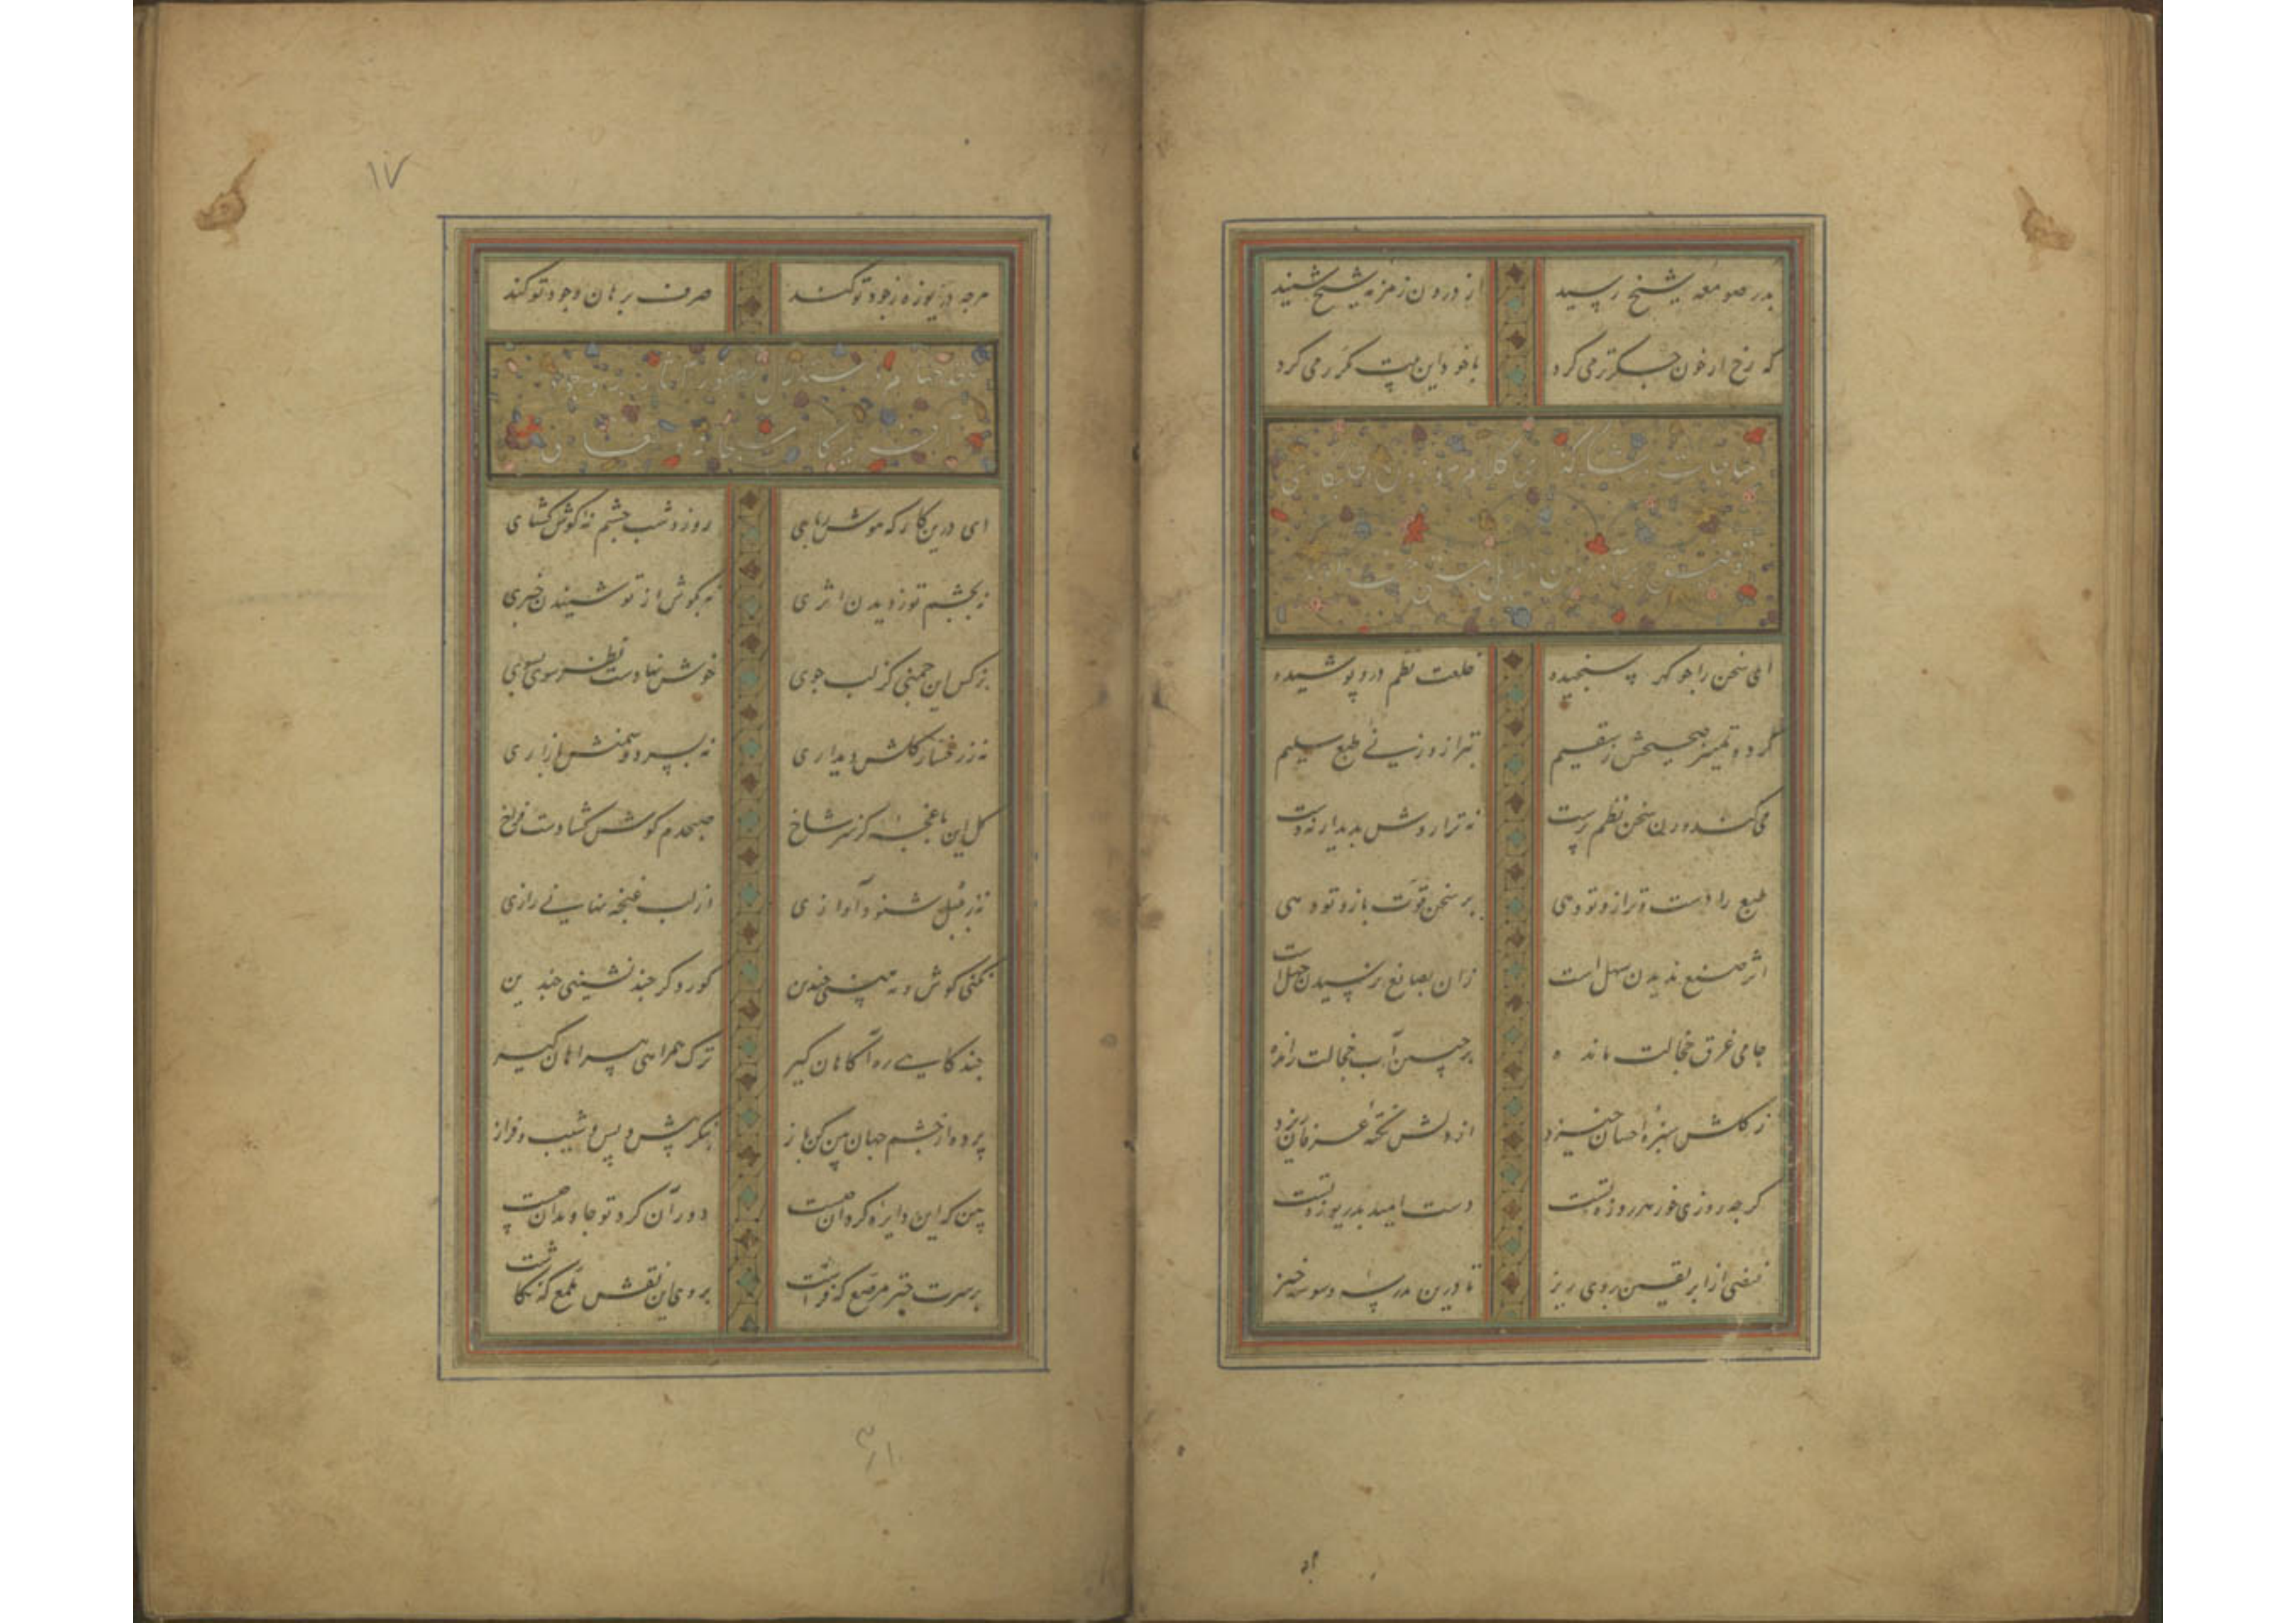 بدر صومعه شیخ رسید از درون زمزمه شیخ شنید
که رخ از خون جگر تر می کرد با خود این بیت مکرر می کرد
مناجات
ای سخن را چو گهر سنجیده خلعت نظم درو پوشیده
کرده تمییز صحیحش ز سقیم بترازوزنی طبع سلیم
می کشد درین سخن نظم پرست نه ترازوش پدیدار نه دست
طبع را دست و ترازو تو دهی بر سخن قوت بازو تو دهی
اثر صنع ندیدن سهل است زان بصانع نرسیدن جهل است
جامی غرق خجالت مانده بر جبین آب خجالت رانده
ز گلش سبزه احسان خیزد از دلش نکته عرفان ریزد
گرچه روزی خور هر روزه تست دست امید بدریوزه تست
فیضی از ابر یقین بروی ریز تا درین مدرسه وسوسه خیز
۱۷
هرچه دریوزه ز جود تو کند صرف برهان وجود تو کند
سبحانه و تعالی
ای درین کارگه هوش ربای روز و شب چشم نه گوش گشای
نه بچشم تو ز دیدن اثری نه بگوش از تو شنیدن خبری
نرگس این چمنی کز لب جوی خوش نهادست نظر سوی بسوی
نه ز رخسار گلش دیداری نه بسرو و سمنش بازاری
گل این باغچه کز سر شاخ صبحدم گوش گشادست فراخ
نه ز بلبل شنود آوازی از لب غنچه نهانی رازی
نکنی گوش و نه بینی چندین کور و کر چند نشینی چندین
چند گاهی ره آگاهان گیر ترک همراهی بیراهان گیر
پرده از چشم جهان بین کن باز بنگر پیش و پس و شیب و فراز
ببین که این دایره گردان چیست دور آن گرد تو جاویدان چیست
بر سرت چتر مرصع که فراشت بر وی این نقش ملمع که نگاشت